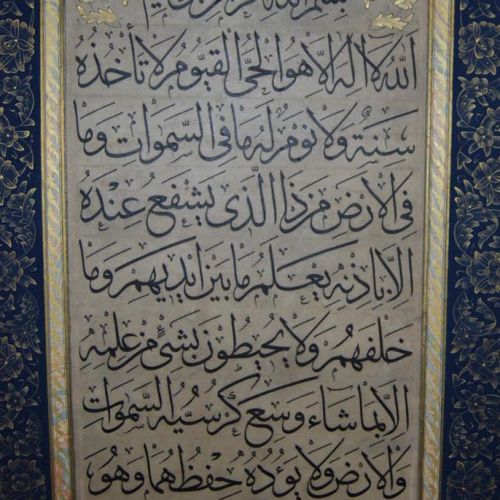 بسم الله الرحمن الرحيم
الله لا اله الا هو الحي القيوم لا تأخذه
سنة ولا نوم له ما في السموات وما
في الارض من ذا الذي يشفع عنده
الا باذنه يعلم ما بين ايديهم وما
خلفهم ولا يحيطون بشئ من علمه
الا بما شاء وسع كرسيه السموات
والارض ولا يؤده حفظهما وهو